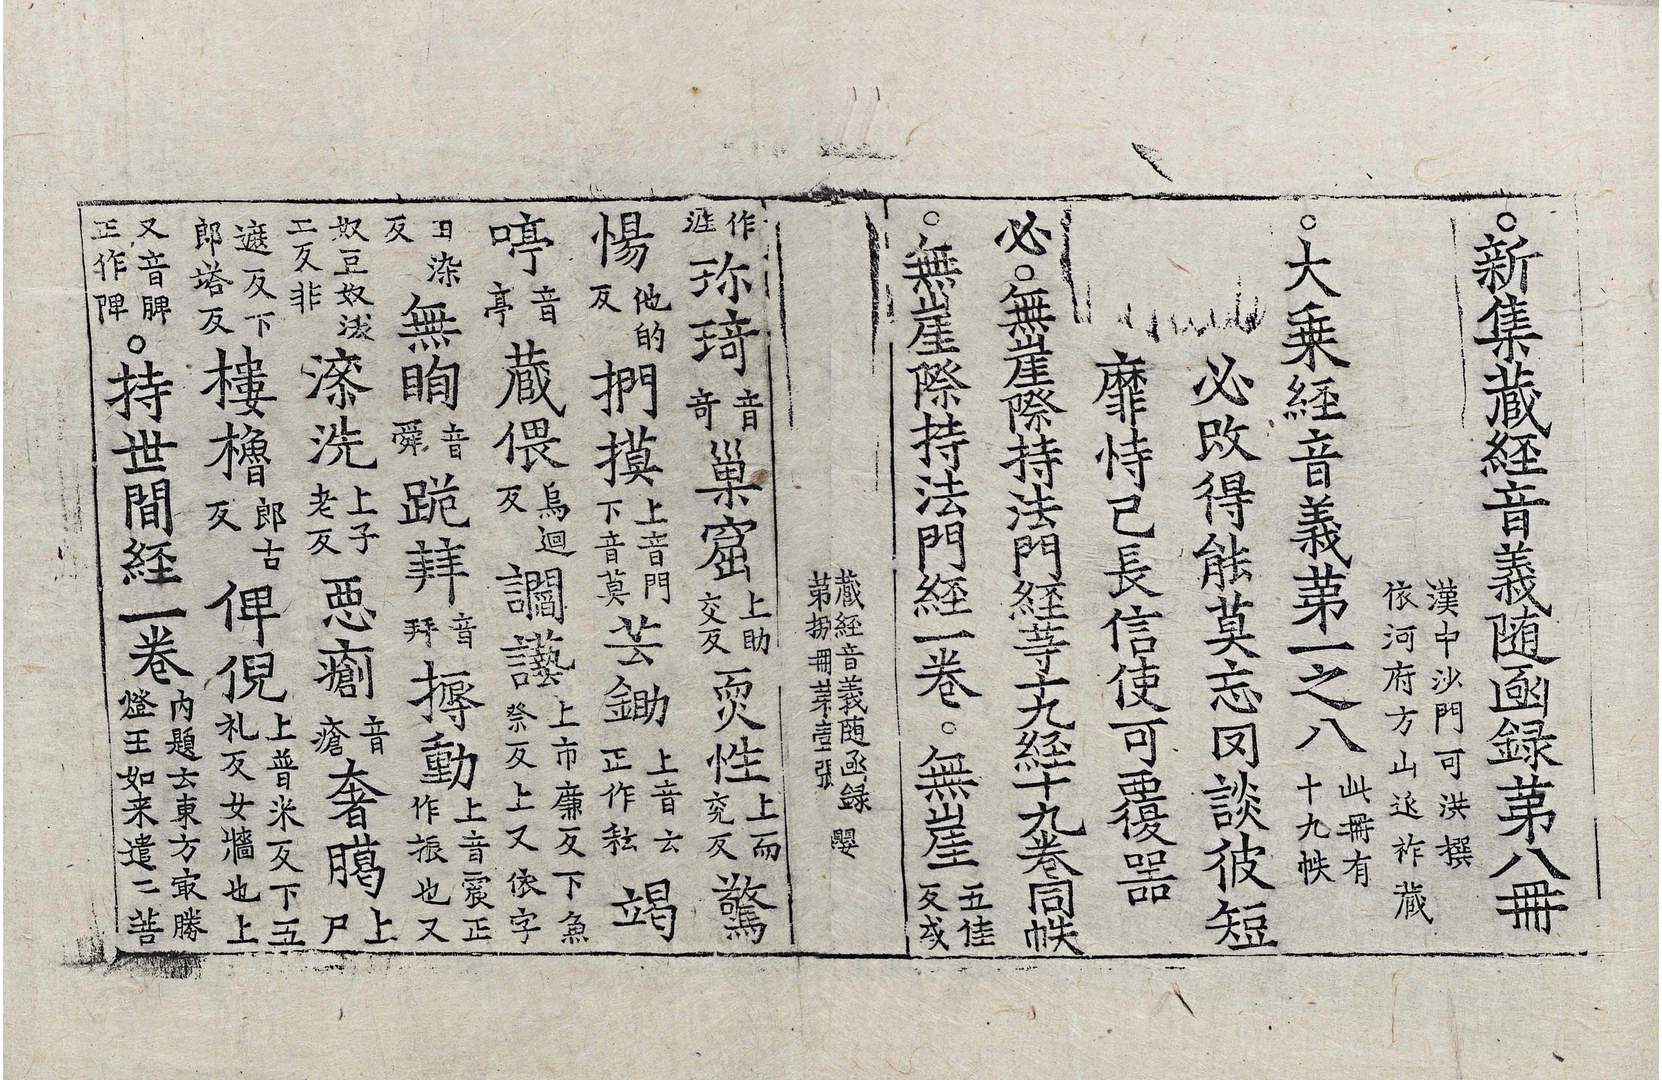 。新集藏經音義随函録苐八冊
漢中沙門可洪撰
依河府方山延祚藏
。大乗経音義苐一之八 此冊有十九帙
必改得能莫忘罔談彼短
靡恃己長信使可覆器
必。無崖際持法門経等十九経十九卷同帙
。無崖際持法門経一卷。無崖 五佳反或
藏経音義随函録
苐捌冊苐壹張 嬰
作漄 珎琦 音奇 巢窟 上助交反 耎性 上而兖反 驚
惕 他的反 捫摸 上音門下音莫 芸鋤 上音云正作耘 竭
啼 音亭 蔵偎 烏迴反 讇䜩 上市廉反下魚祭反上又依字
日染反 無眴 音舜 跪拜 音拜 搙動 上音震正作振也又
奴豆奴沃二反非 㴾洗 上子老反 悪瘡 音瘡 奢臈 上尸
遮反下郎塔反 樓櫓 郎古反 俾倪 上普米反下五礼反女牆也上
又音脾正作陴 。持世間経一卷 内題云東方冣勝燈王如来遣二菩